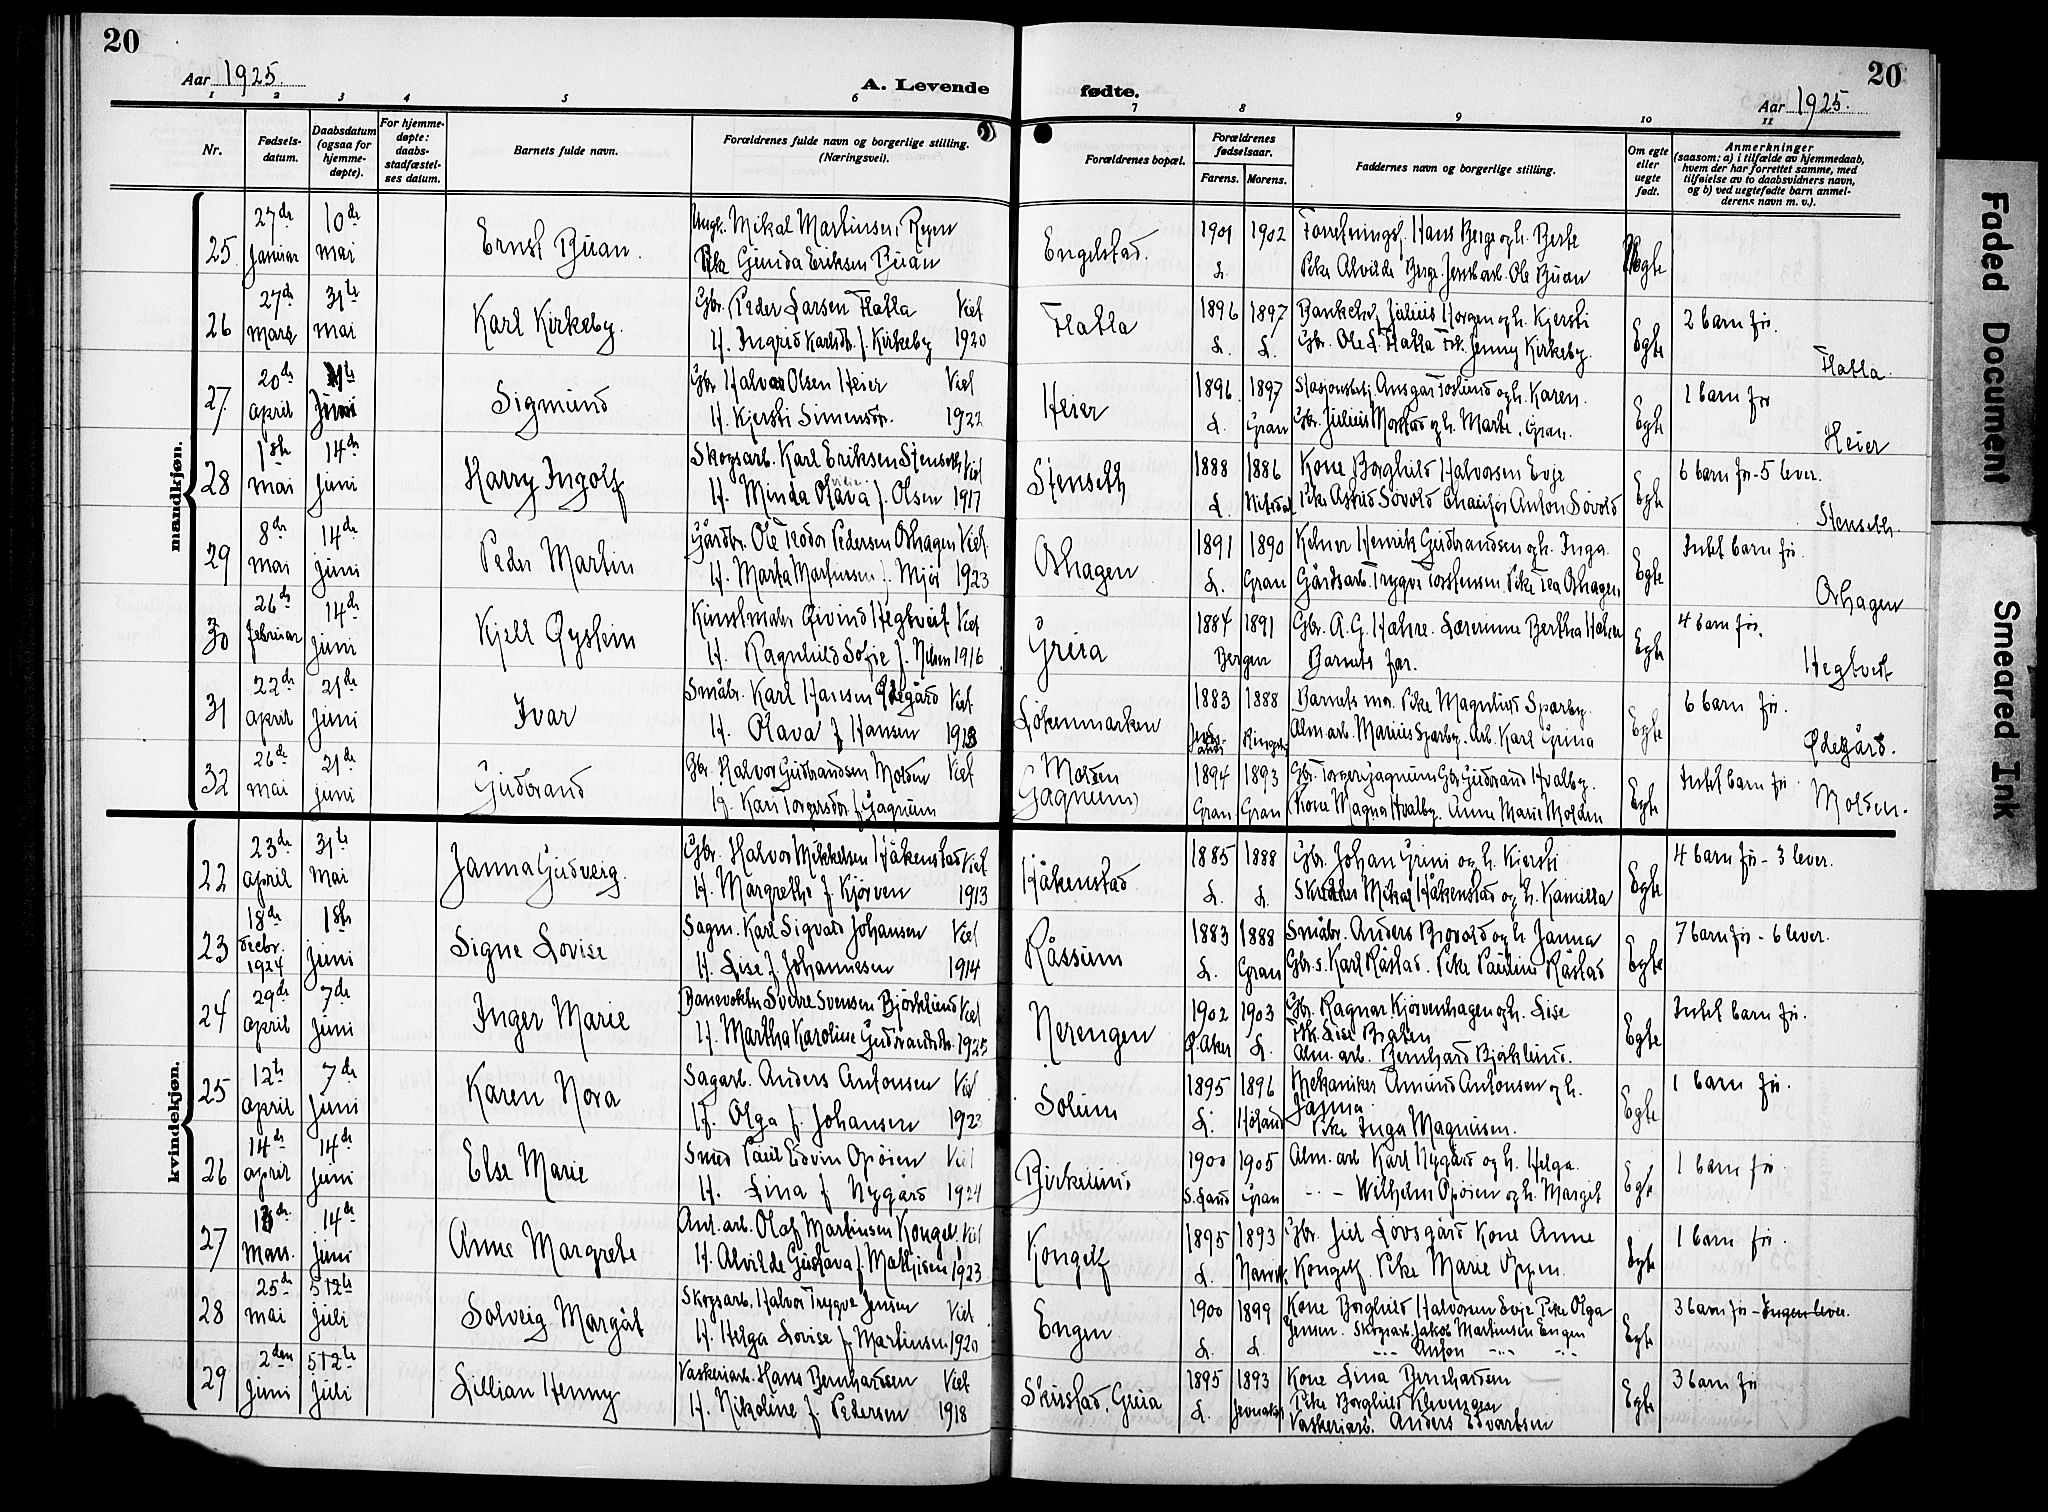 20
20
Aar 1925.
A. Levende fødte.
Aar 1925.
1 2 3 4 5 6 7 8 9 10 11
Nr.
Fødsels-
datum.
Daabsdatum
(ogsaa for
hjemme-
døpte).
For hjemme-
døpte:
daabs-
stadfæstel-
ses datum.
Barnets fulde navn.
Forældrenes fulde navn og borgerlige stilling.
(Næringsvei).
Forældrenes bopæl.
Forældrenes
fødselsaar.
Farens. Morens.
Faddernes navn og borgerlige stilling.
Om egte
eller
uegte
født.
Anmerkninger
(saasom: a) i tilfælde av hjemmedaab,
hvem der har forrettet samme, med
tilføielse av to daabsvidners navn,
og b) ved uegtefødte barn anmel-
derens navn m. v.).
mandkjøn.
25 27de Januar 10de mai Ernst Buan.
Ungk. Mikal Martinsen,
Pike Gunda Eriksen Buan
Engelstad. 1901 1902 L.
Hans Berge og h. Berte
Pike Alvilde Berge. Ole Buan
26 27de mars 31te mai Karl Kirkeby.
Gbr. Peder Larsen Flatla Viet
H. Ingrid Karlsdtr. f. Kirkeby 1920
Flatla 1896 1897 L. L.
Julius Horgen og h. Kjersti
Gbr. Ole L. Flatla Frk. Jenny Kirkeby.
Egte 2 barn før. Flatla.
27. 20de april Juni Sigmund
Gbr Halvor Olsen Heier Viet
H. Kjersti Simensdtr. 1922
Heier 1896 1897 L. Gran
Ansgar Foslund og h. Karen.
Gbr. Julius Morstad og h. Marte, Gran.
Egte 1 barn før Heier
28 1ste mai 14de juni Harry Ingolf
Skogsarb. Karl Eriksen Stenseth Viet
H. Minda Olava f. Olsen 1917
Stenseth 1888 1886 L.
Kone Borghild Halvorsen Evje
Pike Astrid Søvold Chauffør Anton Søvold
Egte 6 barn før - 5 lever. Stenseth
29 8de mai 14de juni Peder Martin
Gårdbr. Ole Teodor Pedersen Orhagen Viet
H. Marta Martinsen f. Mjør 1923
Orhagen 1891 1890 L. Gran
Kelner Henrik Gudbrandsen og h. Inga.
Gårdsarb. Trygve Torstensen Pike Tea Orhagen.
Egte Intet barn før. Orhagen
30 26de februar 14de juni Kjell Øystein
Kunstmaler Øivind Hegtveit Viet
H. Ragnhild Sofie f. Nelsen 1916
Greia 1884 1891 Bergen
Gbr. A. G. Hahre. Lærerinne Bertha Hahre
Barnets far.
Egte 4 barn før. Hegtveit
31 22de april 21de juni Ivar
Småbr. Karl Hansen Ødegård Viet
H. Olava f Hansen
Løkenmarken 1883 1888
Barnets mor. Pike Magnhild Sparby.
Alm arb. Marius Sparby. Arb. Karl Grina
Egte 6 barn før. Ødegård.
32 26de mai 21de juni Gudbrand
Gbr. Halvor Gudbrandsen Molden Viet
H. Kari Torgersdtr. f. Gagnum
Molden (Gagnum) 1894 1893 Gran Gran
Gbr. Torger Gagnum Gbr Gudbrand Hvalby.
Kone Magna Hvalby. Anne Marie Molden
Egte Intet barn før. Molden.
kvindekjøn.
22 23de april 31te mai Janna Gudveig.
Gbr. Halvor Mikkelsen Håkenstad Viet
H. Margrethe f. Kjørven 1913
Håkenstad 1885 1888 L. L.
Gbr. Johan Grini og h. Kjersti
Skredder Mikal Håkenstad og h. Kamilla
Egte 4 barn før - 3 lever.
23 18de decbr. 1924 1ste juni Signe Lovise
Sagm. Karl Sigvald Johansen Viet
H. Lise f. Johannesen 1914
Råssum 1883 1888 L. Gran
Småbr. Anders Brovold og h. Janna
Gbr.s. Karl Råstad. Pike Pauline Råstad
Egte 7 barn før - 6 lever.
24 29de april 7de juni Inger Marie
Banevokter Sverre Svensen Bjørklund Viet
H. Martha Karoline Gudbrandsdtr. 1925
Nerengen 1902 1903 Ø. Aker L.
Gbr. Ragnar Kjørvenhagen og h. Lise
Frk. Lise Braten
Alm. arb. Bernhard Bjørklund.
Egte Intet barn før.
25 12te april 7de juni Karen Nora
Sagarb. Anders Antonsen Viet
H. Olga f. Johansen 1923
Solum 1895 1896 L. Høland
Mekaniker Amund Antonsen og h.
Janna
Pike Inga Magnusen.
Egte 1 barn før.
26 14de april 14de juni Else Marie
Smed Paul Edvin Opøien Viet
H. Lina f Nygård 1924
Birkelund 1900 1905 S. Land Gran
Alm. arb Karl Nygård og h. Helga
- - - Wilhelm Opøien og h. Margit
Egte 1 barn før.
27 mars 14de juni Anne Margrete
Anl. arb. Olaf Martinsen Kongelf Viet
H. Alvilde Gustava f. Mathisen 1923
Kongelf 1895 1893 L. Narvik.
Gbr. Juel Lovsgård Kone Anne
Kongelf. Pike Marie Oppen.
Egte 1 barn før.
28 25de mai 5 12te juli Solveig Margåt
Skogsarb. Halvor Trygve Jensen Viet
H. Helga Lovise f. Martinsen 1920
Engen 1900 1899 L. L.
Kone Borghild Halvorsen Evje Pike Olga
Jensen. Skogsarb. Jakob Martinsen Engen
- - - Anton - - -
Egte 3 barn før - Ingen lever.
29 2den juni 5 12te juli Lillian Henny
Vaskeriarb. Hans Bernhardsen Viet
H. Nikoline f. Pedersen 1918
Skustad, Greia 1895 1893 L. Jevnaker
Kone Lina Bernhardsen
Pike Borghild Klevengen
Vaskeriarb. Anders Edvartsen
Egte 3 barn før
Faded Document
Smeared Ink